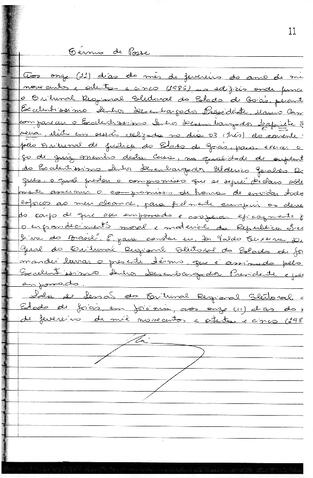 11
Têrmo de Posse
Aos onze (11) dias do mês de fevereiro do ano de mil
novecentos e oitenta e cinco (1985) no edifício onde funcio
o Tribunal Regional Eleitoral do Estado de Goiás, perante
Excelentíssimo Senhor Desembargador Presidente
compareceu o Excelentíssimo Senhor Desembargador
eleito em sessão realizada no dia 03 (três) do corrente
pelo Tribunal de Justiça do Estado de Goiás, para exercer o
go de Juiz membro desta Corte na qualidade de suplente
do Excelentíssimo Senhor Desembargador Geraldo
o qual prestou o compromisso que se segue:
assumir o compromisso de honra de envidar todo
esforço ao meu alcance, para fielmente cumprir os deve
do cargo de que sou empossado e cooperar eficazmente
o engrandecimento moral e material da República
do Brasil. E para constar eu,
Geral do Tribunal Regional Eleitoral do Estado de Go
mandei lavrar o presente têrmo que é assinado pelo
Excelentíssimo Senhor Desembargador Presidente e pelo
empossado.
Sala de Sessão do Tribunal Regional Eleitoral
Estado de Goiás, em Goiânia, aos onze (11) dias do
de fevereiro de mil novecentos e oitenta e cinco (198